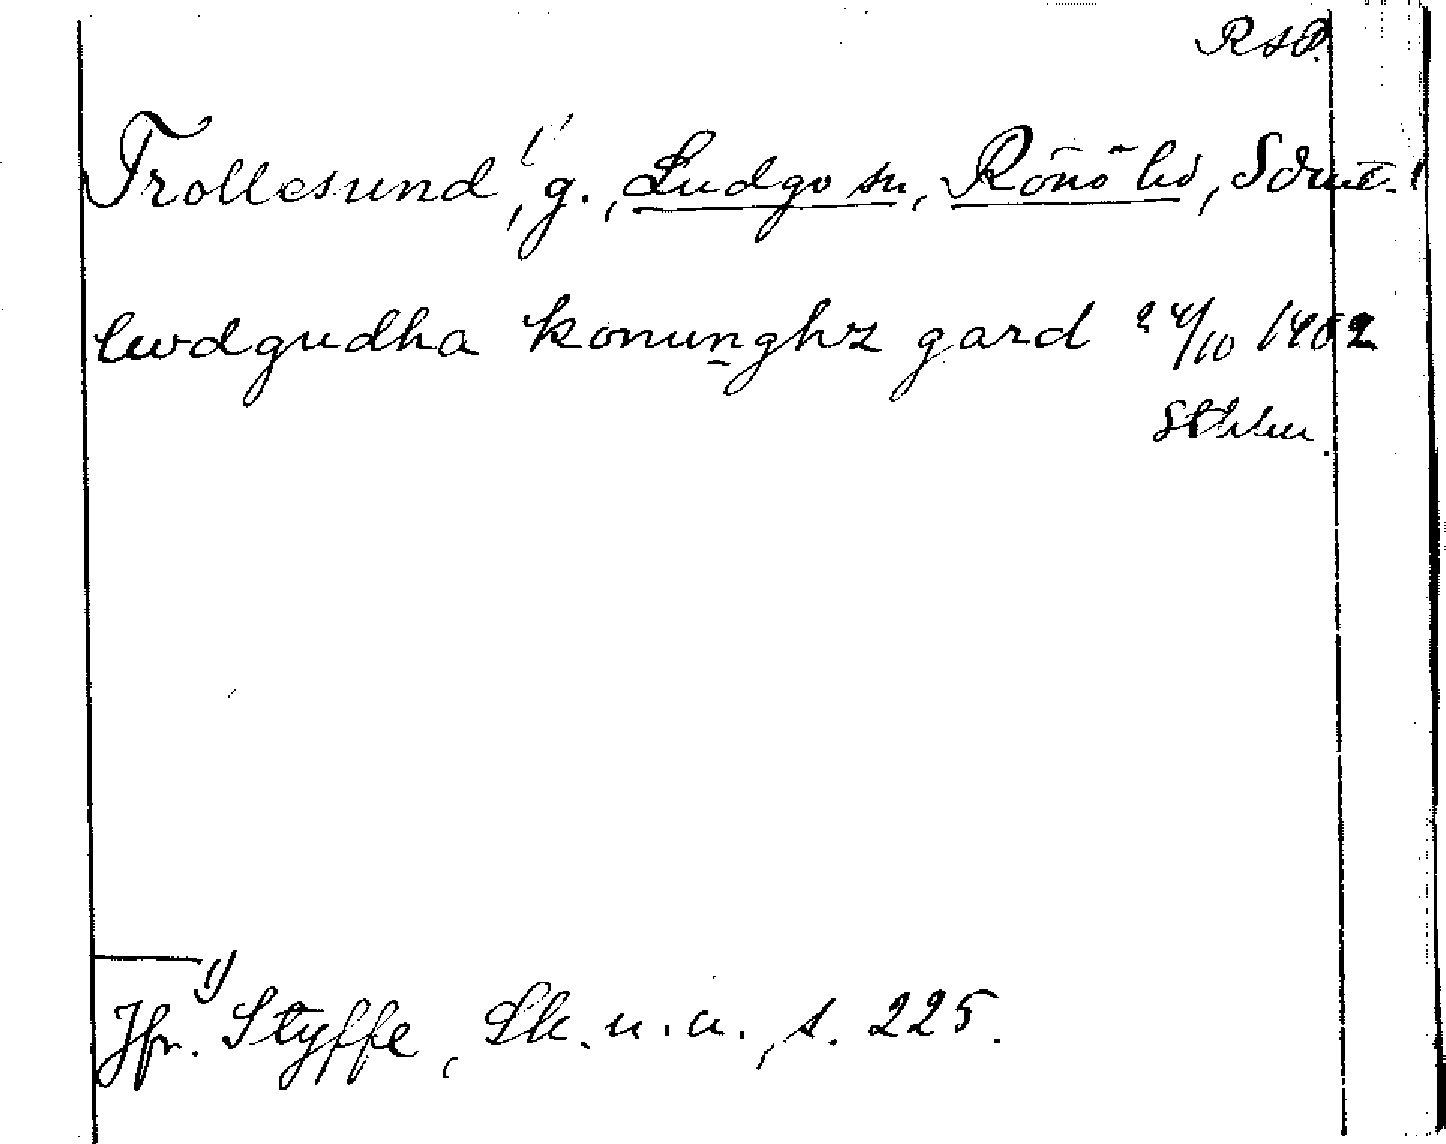 RAP.
Trollesund ¹⁾, g., Ludgo sn, Rönö hd, Sdml.
lwdgudha konunghz gard 24/10 1402
Sthlm
¹⁾ Jfr. Styffe, Sk. u. a., s. 225.